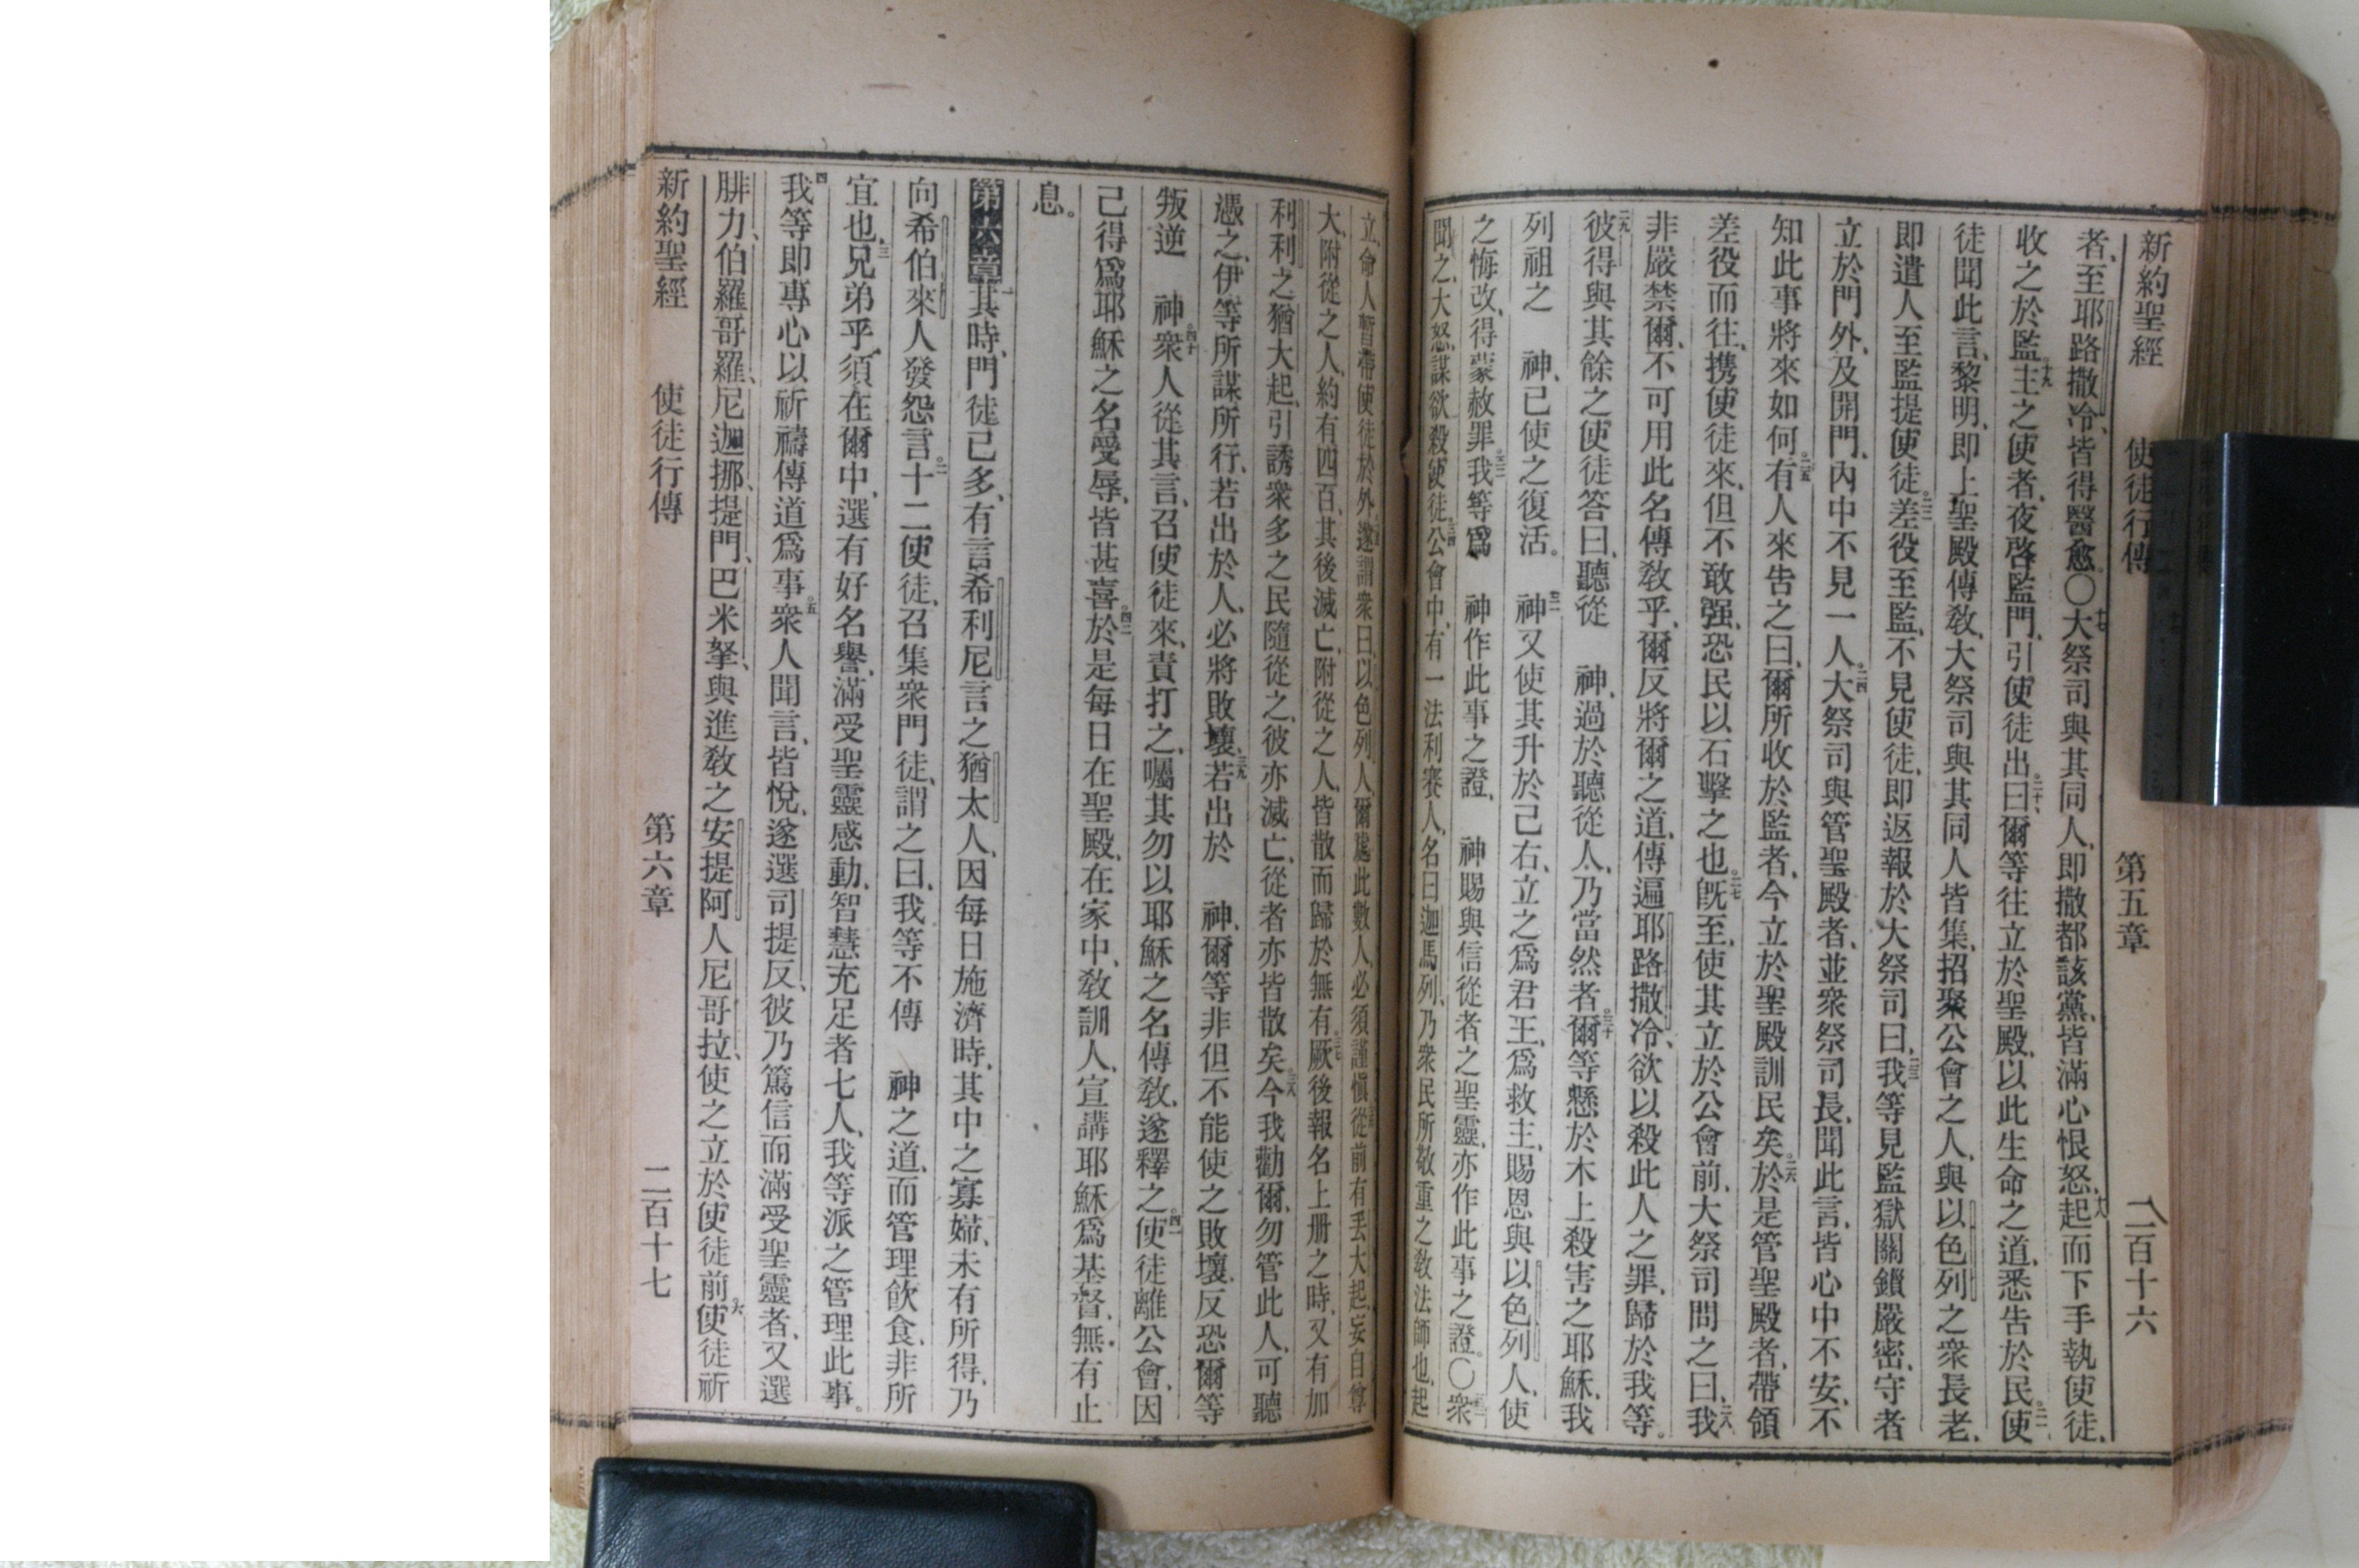 新約聖經 使徒行傳 第五章 二百十六
者、至耶路撒冷、皆得醫愈。〇十七大祭司與其同人、即撒都該黨、皆滿心恨怒、十八起而下手執使徒、
收之於監。十九主之使者、夜啓監門、引使徒出。二十曰、爾等往立於聖殿、以此生命之道、悉告於民。二一使
徒聞此言、黎明、即上聖殿傳教、大祭司與其同人皆集、招聚公會之人、與以色列之衆長老、
即遣人至監提使徒。二二差役至監、不見使徒、即返報於大祭司曰、二三我等見監獄關鎖嚴密、守者
立於門外、及開門、內中不見一人。二四大祭司與管聖殿者、並衆祭司長、聞此言、皆心中不安、不
知此事將來如何。二五有人來告之曰、爾所收於監者、今立於聖殿訓民矣。二六於是管聖殿者、帶領
差役而往、携使徒來、但不敢强、恐民以石擊之也。二七旣至、使其立於公會前、大祭司問之曰、二八我
非嚴禁爾、不可用此名傳教乎、爾反將爾之道、傳遍耶路撒冷、欲以殺此人之罪、歸於我等。
二九彼得與其餘之使徒答曰、聽從 神、過於聽從人、乃當然者。三十爾等懸於木上殺害之耶穌、我
列祖之 神、已使之復活。三一 神又使其升於己右、立之爲君王、爲救主、賜恩與以色列人、使
之悔改、得蒙赦罪。三二我等爲 神作此事之證、 神賜與信從者之聖靈、亦作此事之證。〇三三衆
聞之、大怒、謀欲殺使徒。三四公會中、有一法利賽人、名曰迦馬列、乃衆民所敬重之教法師也、起
立、命人暫帶使徒於外、三五遂謂衆曰、以色列人、爾處此數人、必須謹愼、三六從前有丟大起、妄自尊
大、附從之人、約有四百、其後滅亡、附從之人、皆散而歸於無有。三七厥後報名上册之時、又有加
利利之猶大起、引誘衆多之民隨從之、彼亦滅亡、從者亦皆散矣。三八今我勸爾、勿管此人、可聽
憑之、伊等所謀所行、若出於人、必將敗壞、三九若出於 神、爾等非但不能使之敗壞、反恐爾等
叛逆 神。四十衆人從其言、召使徒來、責打之、囑其勿以耶穌之名傳教、遂釋之。四一使徒離公會、因
己得爲耶穌之名受辱、皆甚喜。四二於是每日在聖殿、在家中、教訓人、宣講耶穌爲基督、無有止
息。
第六章一其時、門徒已多、有言希利尼言之猶太人、因每日施濟時、其中之寡婦、未有所得、乃
向希伯來人發怨言。二十二使徒、召集衆門徒、謂之曰、我等不傳 神之道、而管理飲食、非所
宜也、三兄弟乎、須在爾中、選有好名譽、滿受聖靈感動、智慧充足者七人、我等派之管理此事。
四我等即專心以祈禱傳道爲事。五衆人聞言、皆悅、遂選司提反、彼乃篤信而滿受聖靈者、又選
腓力、伯羅哥羅、尼迦挪、提門、巴米拏、與進教之安提阿人尼哥拉、使之立於使徒前。六使徒祈
新約聖經 使徒行傳 第六章 二百十七